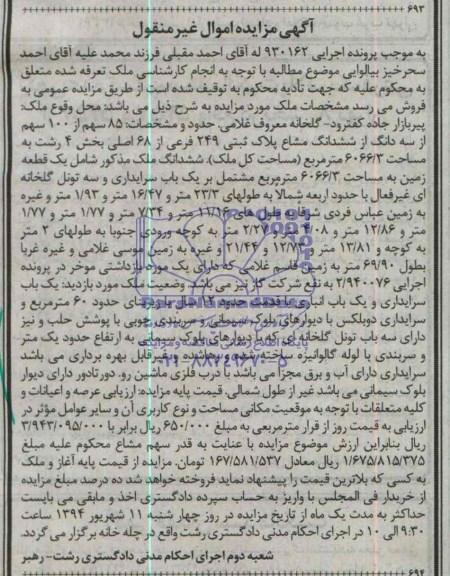 ۶۹۳
آگهی مزایده اموال غیرمنقول
به موجب پرونده اجرایی ۹۳۰۱۶۲ له آقای احمد مقبلی فرزند محمد علیه آقای احمد
سحرخیز بیالوایی موضوع مطالبه با توجه به انجام کارشناسی ملک تعرفه شده متعلق
به محکوم علیه که جهت تأدیه محکوم به توقیف شده است از طریق مزایده عمومی به
فروش می رسد مشخصات ملک مورد مزایده به شرح ذیل می باشد: محل وقوع ملک:
پیربازار جاده کفترود- گلخانه معروف غلامی. حدود و مشخصات: ۸۵ سهم از ۱۰۰ سهم
از سه دانگ از ششدانگ مشاع پلاک ثبتی ۲۴۹ فرعی از ۶۸ اصلی بخش ۴ رشت به
مساحت ۶۰۶۶/۳ مترمربع (مساحت کل ملک). ششدانگ ملک مذکور شامل یک قطعه
زمین به مساحت ۶۰۶۶/۳ مترمربع مشتمل بر یک باب سرایداری و سه تونل گلخانه
ای غیرفعال با حدود اربعه شمالا به طولهای ۲۳/۳ متر و ۱۶/۴۷ متر و ۱/۹۳ متر و غیره
به زمین عباس فردی شرقا به طول های ۱۱/۱۶ متر و ۷/۳۴ متر و ۱/۷۷ متر و ۱/۷۷
متر و ۱۲/۸۶ متر و ۴۰۸ متر و ۲/۲۷ متر به کوچه ورودی جنوبا به طولهای ۲ متر
به کوچه و ۱۳/۸۱ متر و ۱۲/۷۳ و ۲۱/۴۴ و غیره به زمین موسی غلامی و غیره غربا
بطول ۶۹/۹۰ متر به زمین قاسم غلامی که دارای یک مورد بازداشتی موخر در پرونده
اجرایی ۲/۹۴۰۰۷۶ به نفع شرکت گاز نیز می باشد. وضعیت ملک مورد بازدید: یک باب
سرایداری و یک باب انباری با قدمت حدود ۱۲ سال با زیربنای حدود ۶۰ مترمربع و
سرایداری دوبلکس با دیوارهای بلوک سیمانی و سربندی چوبی با پوشش حلب و نیز
دارای سه باب تونل گلخانه ای که با دیوارهای بلوک سیمانی به ارتفاع حدود یک متر
و سربندی با لوله گالوانیزه ساخته شده و رهاشده و غیرقابل بهره برداری می باشد
سرایداری دارای آب و برق مجزا می باشد با درب فلزی ماشین رو. دورتادور دارای دیوار
بلوک سیمانی می باشد غیر از طول شمالی. قیمت پایه مزایده: ارزیابی عرصه و اعیانات و
کلیه متعلقات با توجه به موقعیت مکانی مساحت و نوع کاربری آن و سایر عوامل مؤثر در
ارزیابی به قیمت روز از قرار مترمربعی به مبلغ ۶۵۰/۰۰۰ ریال برابر با ۳/۹۴۳/۰۹۵/۰۰۰
ریال بنابراین ارزش موضوع مزایده با عنایت به قدر سهم مشاع محکوم علیه مبلغ
۱/۶۷۵/۸۱۵/۳۷۵ ریال معادل ۱۶۷/۵۸۱/۵۳۷ تومان. مزایده از قیمت پایه آغاز و ملک
به کسی که بالاترین قیمت را پیشنهاد نماید فروخته خواهد شد ده درصد مبلغ مزایده
از خریدار فی المجلس با واریز به حساب سپرده دادگستری اخذ و مابقی می بایست
حداکثر به مدت یک ماه از تاریخ مزایده در روز چهار شنبه ۱۱ شهریور ۱۳۹۴ ساعت
۹:۳۰ الی ۱۰ در اجرای احکام مدنی دادگستری رشت واقع در چله خانه برگزار می گردد.
شعبه دوم اجرای احکام مدنی دادگستری رشت- رهبر
۶۹۴